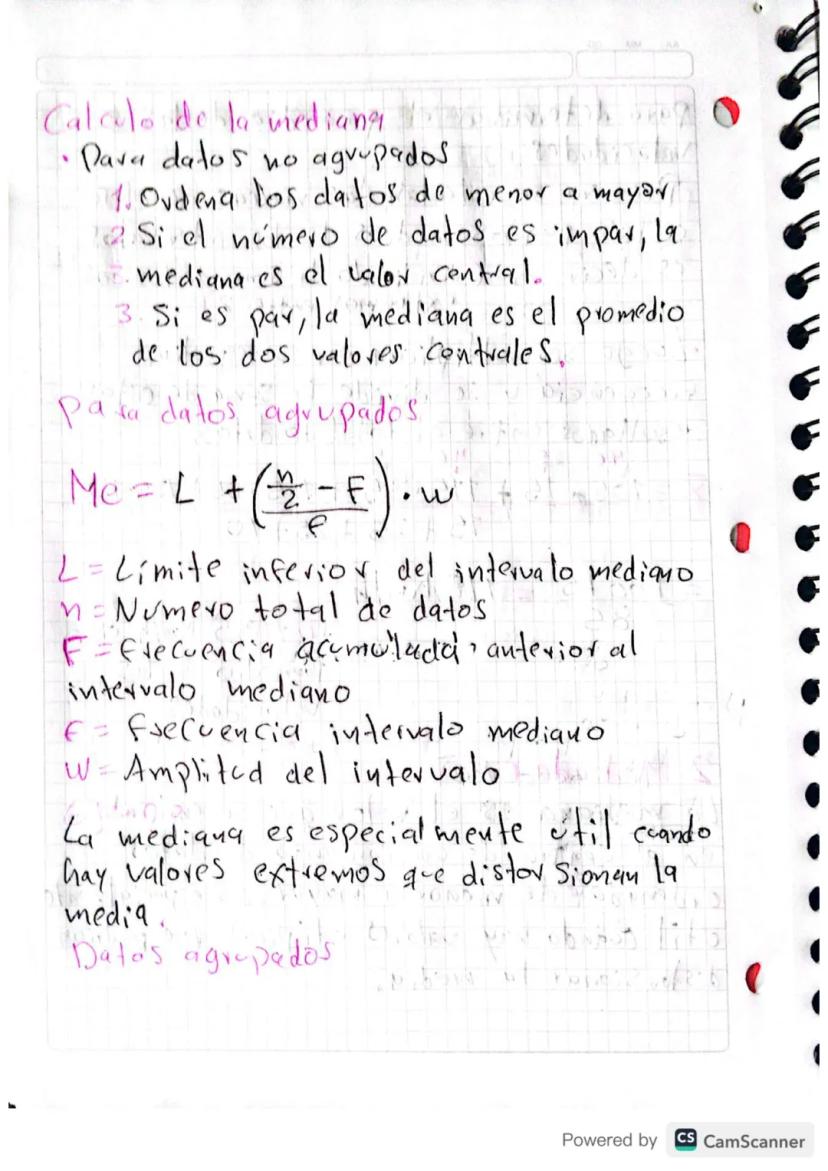 Calculo de la mediana
• Para datos no agrupados
1. Ordena los datos de menor a mayor
2. Si el número de datos es impar, la
mediana es el valor central.
3. Si es par, la mediana es el promedio
de los dos valores centrales.
para datos agrupados
Me = L + ((n/2 - F)/f) · w
L = Límite inferior del intervalo mediano
n = Numero total de datos
F = frecuencia acumulada anterior al
intervalo mediano
f = frecuencia intervalo mediano
W = Amplitud del intervalo
La mediana es especialmente útil cuando
hay valores extremos que distorsionan la
media.
Datos agrupados
Powered by CS CamScanner